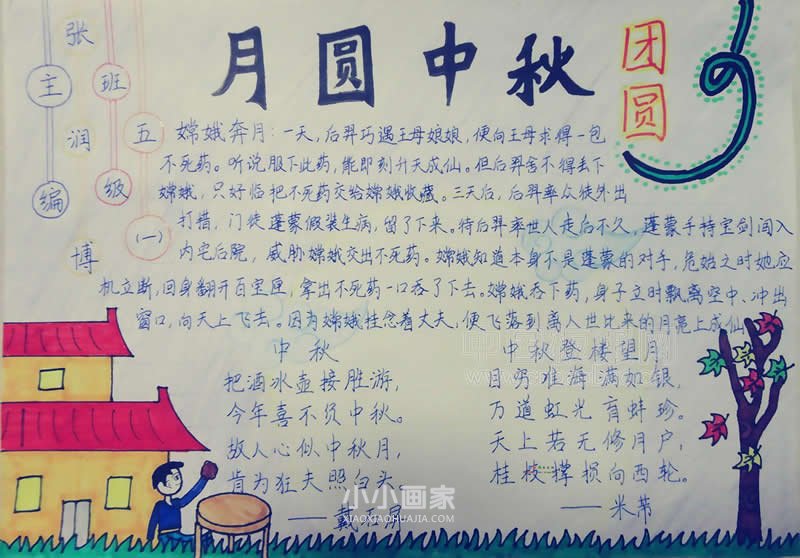 月圆中秋
团圆
张润博
主编
班级
五(一)
嫦娥奔月：一天，后羿巧遇王母娘娘，便向王母求得一包
不死药。听说服下此药，能即刻升天成仙。但后羿舍不得丢下
嫦娥，只好临把不死药交给嫦娥收藏。三天后，后羿率众徒外出
打措，门徒蓬蒙假装生病，留了下来。待后羿率世人走后不久，蓬蒙手持宝剑闯入
内宅后院，威胁嫦娥交出不死药。嫦娥知道本身不是蓬蒙的对手，危殆之时她应
机立断，回身翻开百宝匣，拿出不死药一口吞了下去。嫦娥吞下药，身子立时飘离空中、冲出
窗口，向天上飞去。因为嫦娥挂念着丈夫，便飞落到离人世比来的月亮上成仙
中秋
把酒冰壶接胜游，
今年喜不负中秋。
故人心似中秋月，
肯为狂夫照白头。
中秋登楼望月
目穷淮海满如银，
万道虹光育蚌珍。
天上若无修月户，
桂枝撑损向西轮。
——米芾
小小画家
XIAOXIAOHUAJIA.COM